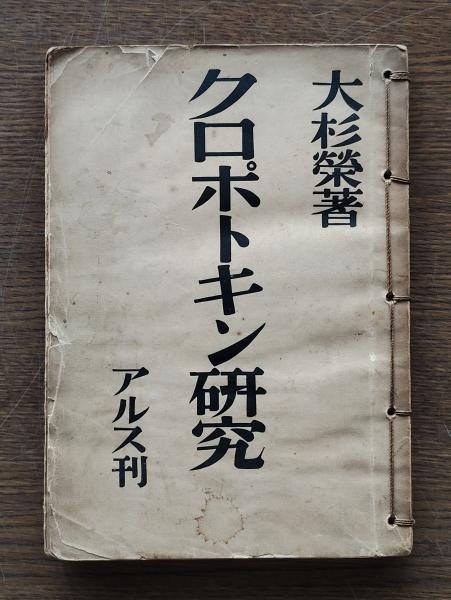 大杉榮著
クロポトキン研究
アルス刊